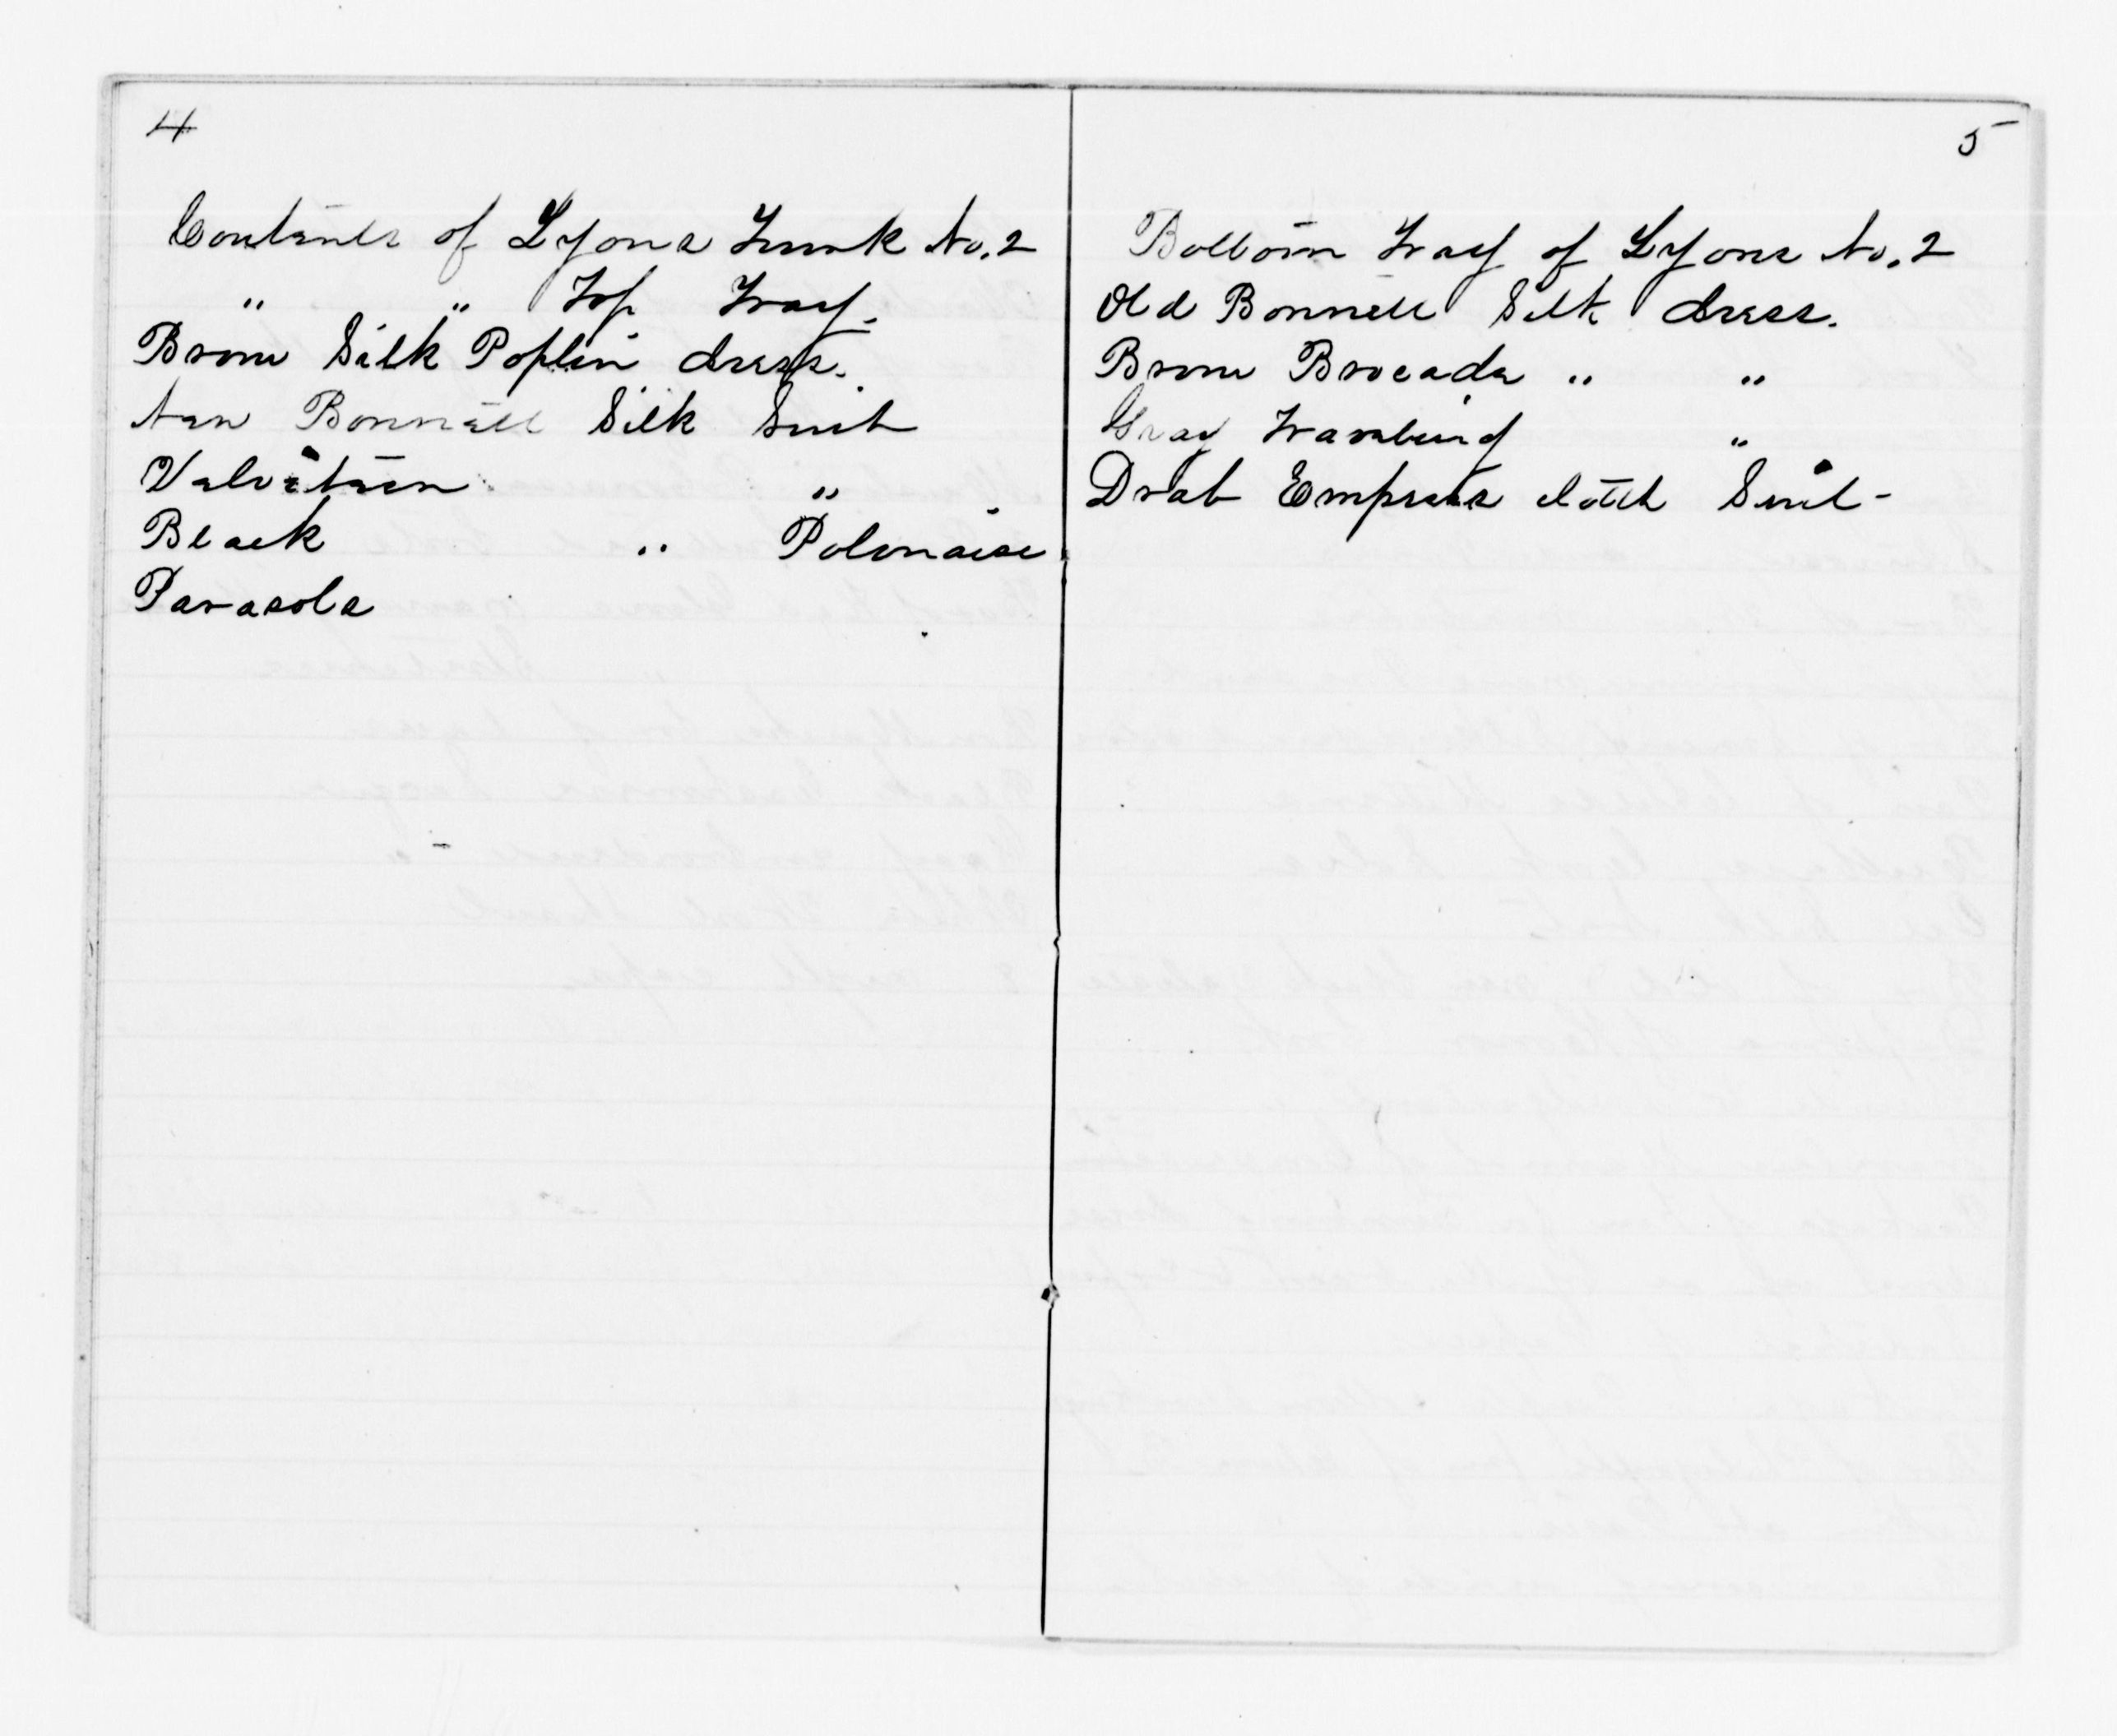 4
Contents of Lyons Trunk No. 2
" " Top Tray.
Brown Silk Poplin dress.
New Bonnett Silk Suit
Velveteen "
Black " Polonaise
Parasols
5
Bottom Tray of Lyons No. 2
Old Bonnett Silk dress.
Brown Brocade " "
Gray Traveling "
Drab Empress cloth Suit-